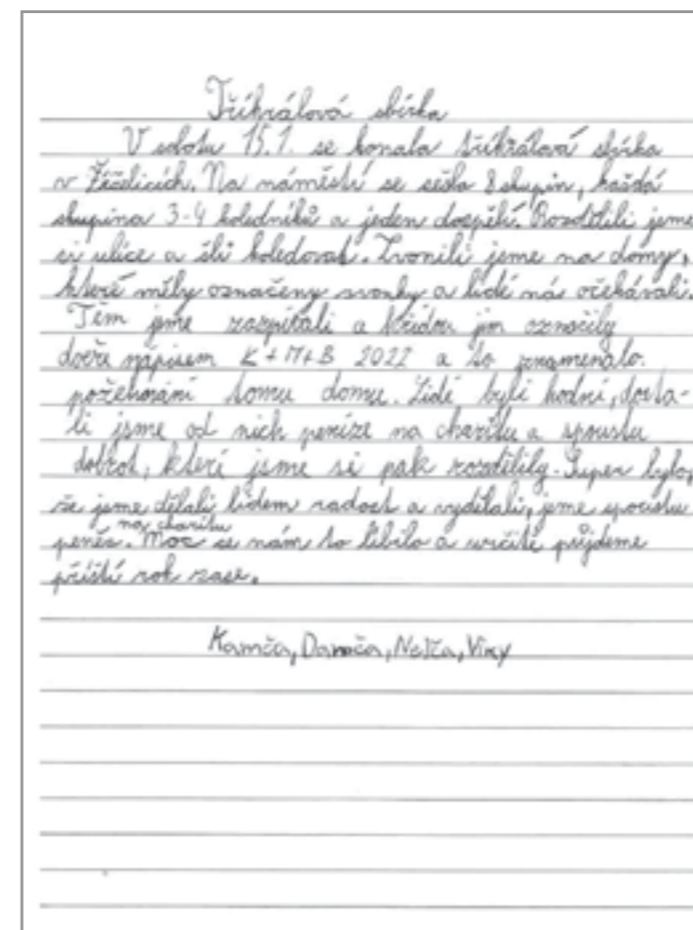 Tříkrálová sbírka
V sobotu 15.1. se konala tříkrálová sbírka
v Žíželicích. Na náměstí se sešlo 8 skupin, každá
skupina 3-4 koledníků a jeden dospělí. Rozdělili jsme
si ulice a šli koledovat. Zvonili jsme na domy,
které měly označeny zvonky a lidé nás očekávali.
Těm jsme zazpívali a křídou jim označily
dveře nápisem K+M+B 2022 a to znamenalo
požehnání tomu domu. Lidé byli hodní, dosta-
li jsme od nich peníze na charitu a spoustu
dobrot, kterí jsme si pak rozdělily. Super bylo,
že jsme dělali lidem radost a vydělali, jsme spoustu
na charitu
peněs. Moc se nám to líbilo a určitě půjdeme
příští rok zase.
Kamča, Danča, Nelča, Viky